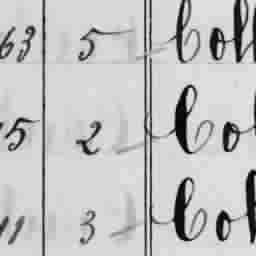 63 5 Coll
15 2 Col
11 3 Col